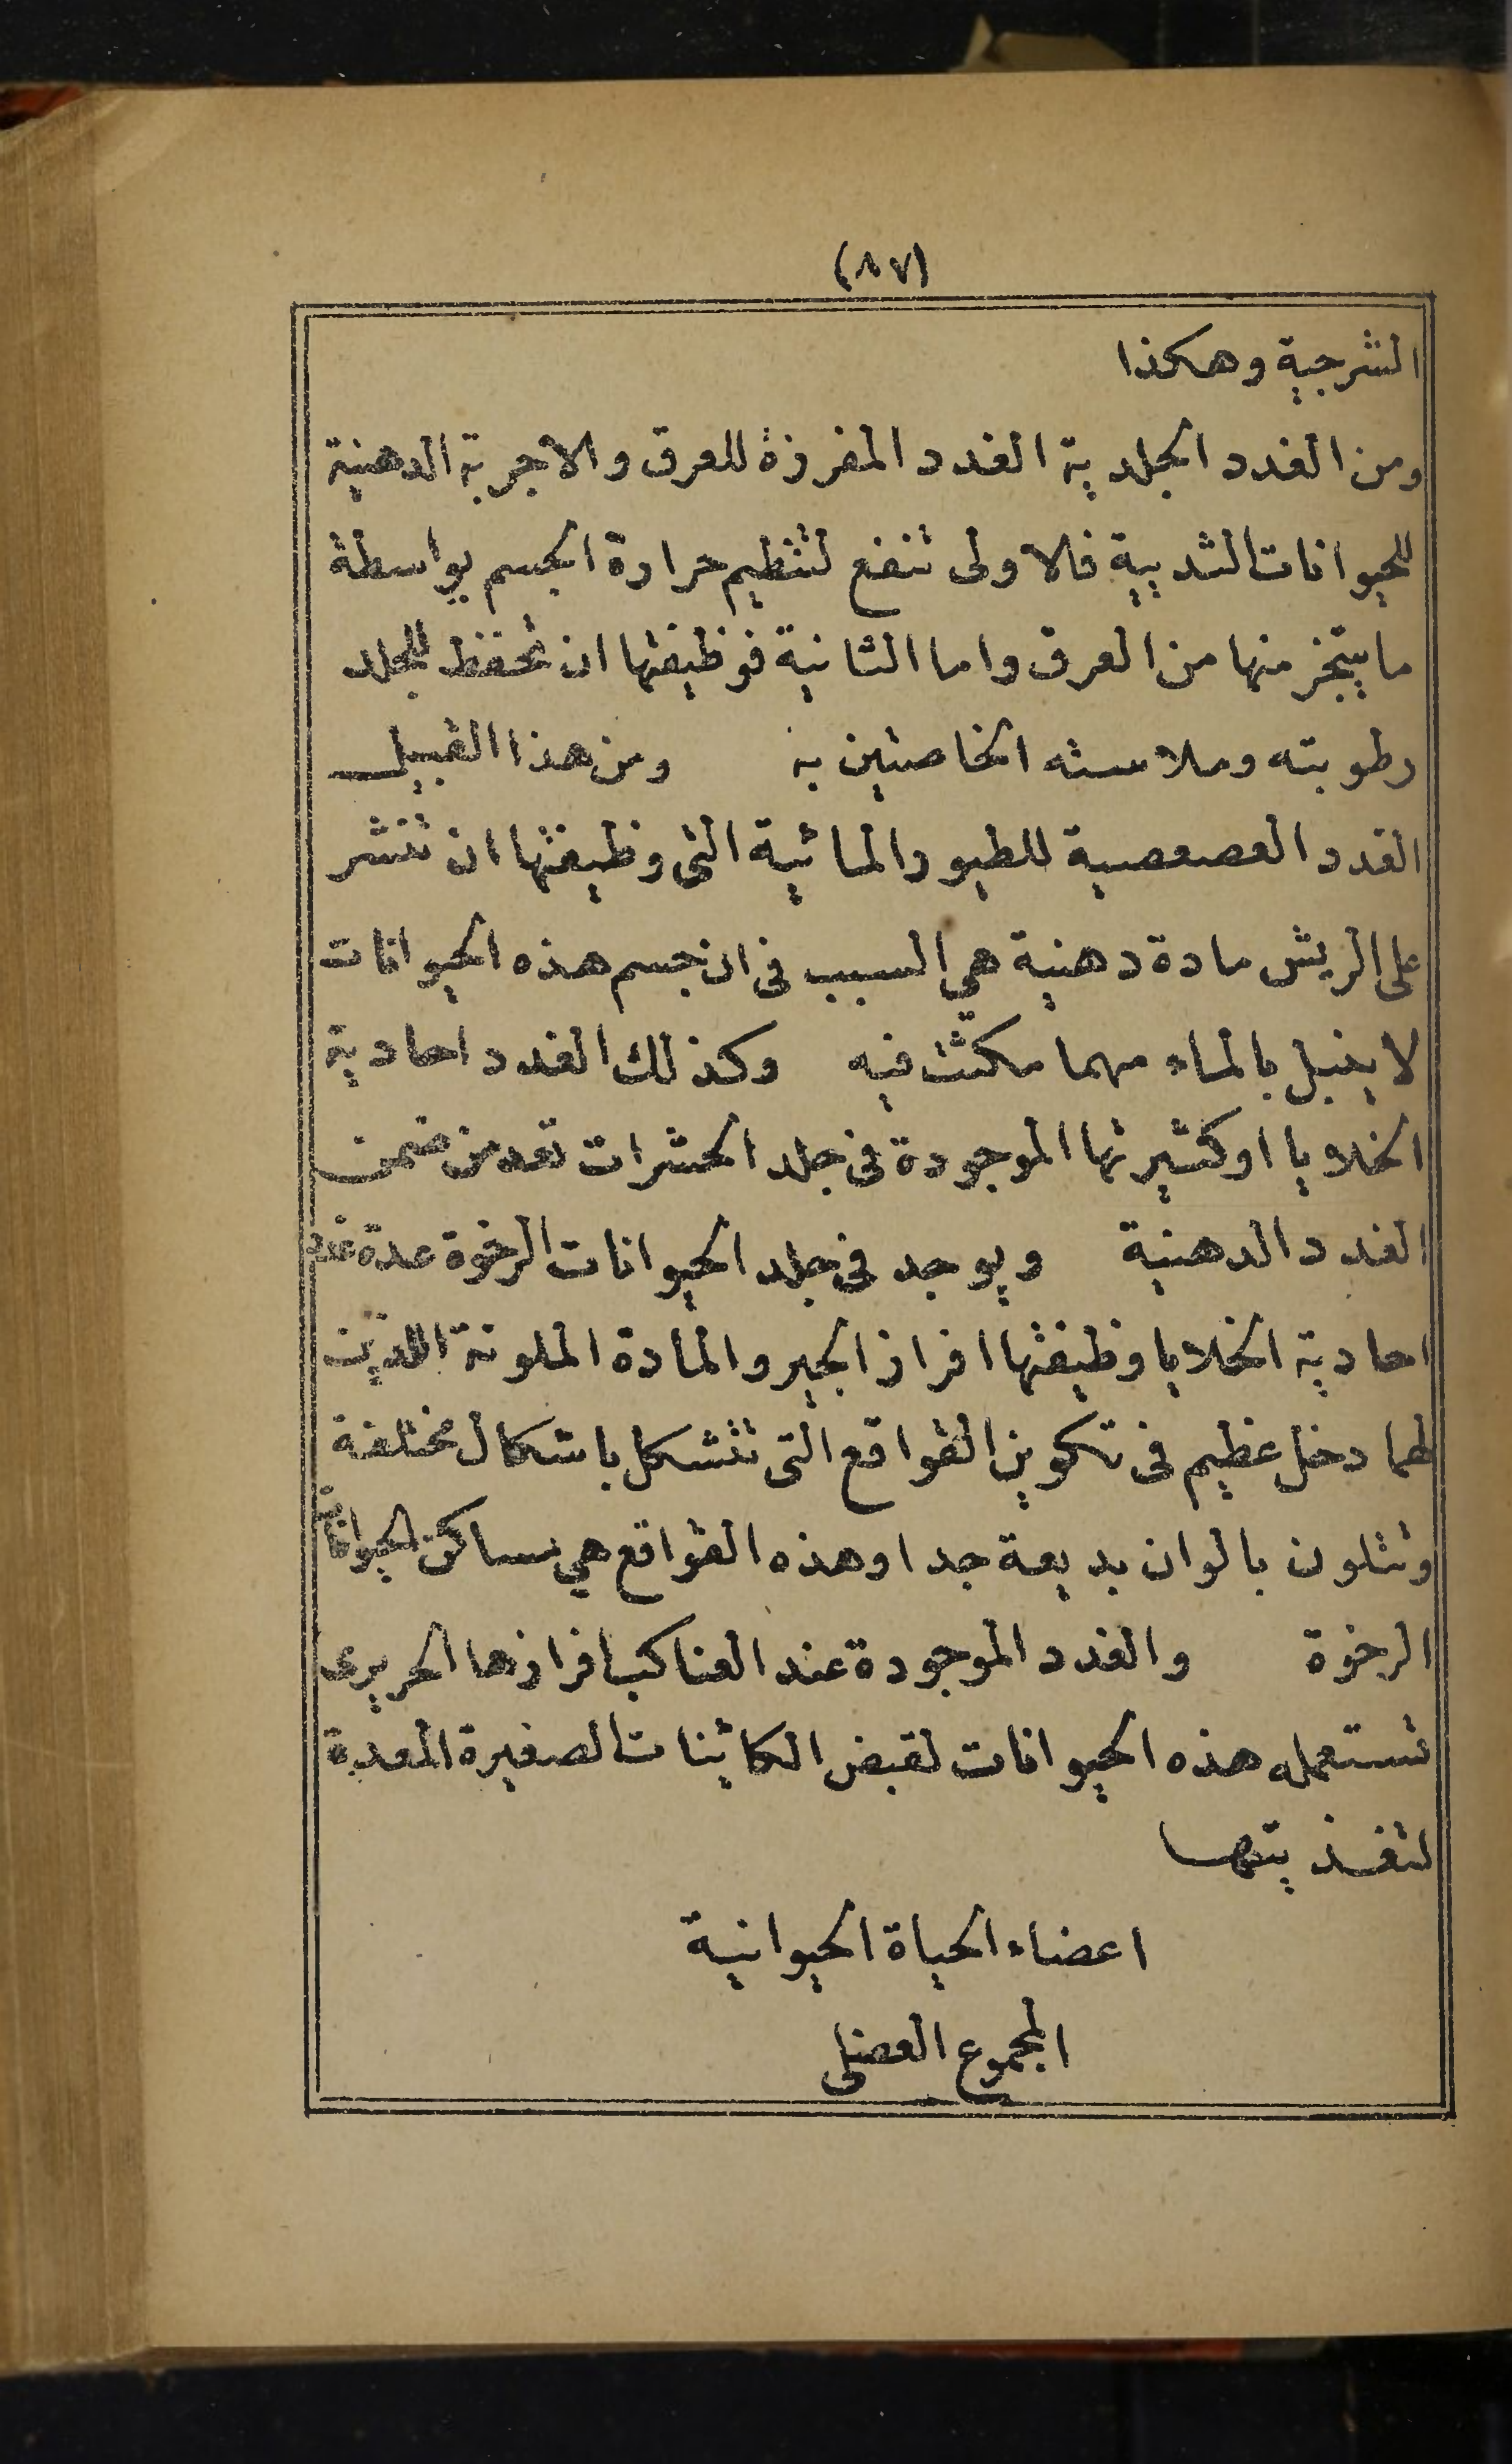 (٨٧)
الشرجية وهكذا
ومن الغدد الجلدية الغدد المفرزة للعرق والاجربة الدهنية
للحيوانات الثديية فالاولى تنفع لتنظيم حرارة الجسم بواسطة
ما يتبخر منها من العرق واما الثانية فوظيفتها ان تحفظ للجلد
رطوبته وملاسته الخاصتين به ومن هذا القبيل
الغدد العصعصية للطيور المائية التى وظيفتها ان تنشر
على الريش مادة دهنية هي السبب فى ان جسم هذه الحيوانات
لا يبتل بالماء مهما مكثت فيه وكذلك الغدد احادية
الخلايا او كثيرتها الموجودة فى جلد الحشرات تعد من ضمن
الغدد الدهنية ويوجد فى جلد الحيوانات الرخوة عدة غدد
احادية الخلايا وظيفتها افراز الجير والمادة الملونة اللذين
لهما دخل عظيم فى تكوين القواقع التى تتشكل باشكال مختلفة
وتتلون بالوان بديعة جدا وهذه القواقع هي مساكن الحيوانات
الرخوة والغدد الموجودة عند العناكب افرازها الحريرى
تستعمله هذه الحيوانات لقبض الكائنات الصغيرة المعدة
لتغذيتها
اعضاء الحياة الحيوانية
المجموع العضلى